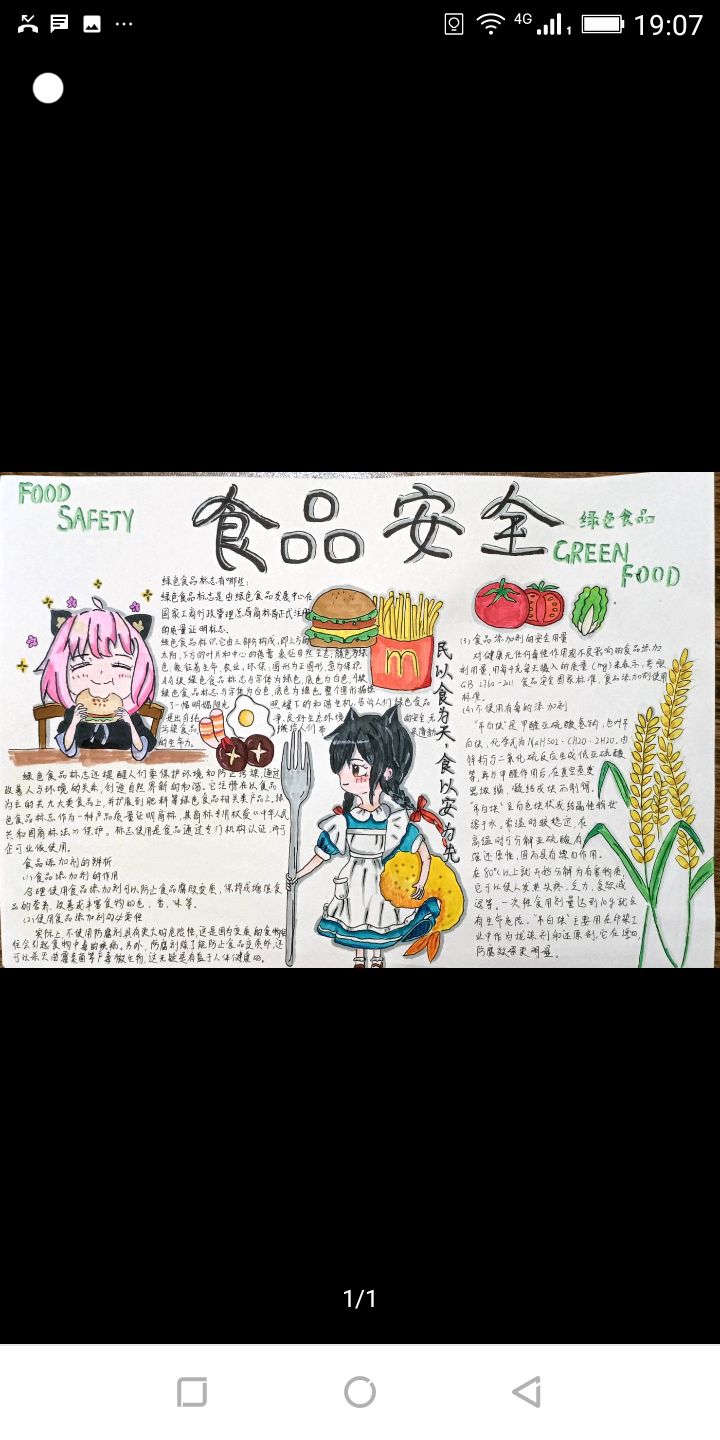 4G
1
19:07
FOOD
SAFETY
食品安全
绿色食品
GREEN
FOOD
绿色食品标志有哪些:
绿色食品标志是由绿色食品发展中心在
国家工商行政管理总局商标局正式注册
的质量证明标志。
绿色食品标识它由三部分构成,即上方的
太阳、下方的叶片和中心的蓓蕾,象征自然生态;颜色为绿
色,象征着生命,农业,环保;图形为正圆形,意为保护。
AA级绿色食品标志与字体为绿色,底色为白色,A级
绿色食品标志与字体为白色,底色为绿色,整个图形描绘
了一幅明媚阳光 照耀下的和谐生机,告诉人们绿色食品
是出自纯 净、良好生态环境 的安全、无
污染食品,
的生命力。
m
民以食为天,食以安为先
绿色食品标志还提醒人们要保护环境和防止污染,通过
改善人与环境的关系,创造自然界新的和谐。它注册在以食品
为主的共九大类食品上,并扩展到肥料等绿色食品相关类产品上,绿
色食品标志作为一种产品质量证明商标,其商标专用权受《中华人民
共和国商标法》保护。标志使用是食品通过专门机构认证,许可
企业依使用。
食品添加剂的辨析
(1)食品添加剂的作用
合理使用食品添加剂可以防止食品腐败变质,保持或增强食
品的营养,改善或丰富食物的色,香,味等。
(2)使用食品添加剂的必要性
实际上,不使用防腐剂具有更大的危险性,这是因为变质的食物往
往会引起食物中毒的疾病。另外,防腐剂除了能防止食品变质外,还
可以杀灭曲霉素菌等产毒微生物,这无疑是有益于人体健康的。
(3)食品添加剂的安全用量
对健康无任何毒性作用或不良影响的食品添加
剂用量,用每千克每天摄入的质量(mg)来表示,参照
GB 2760-2011 食品安全国家标准,食品添加剂使用
标准。
(4)不使用有毒的添加剂
"吊白块"是甲醛亚硫酸氢钠,也叫吊
白块,化学式为NaHSO2·CH2O·2H2O,由
锌粉与二氧化硫反应生成低亚硫酸
锌,再与甲醛作用后,在真空蒸发
器浓缩,凝结成块而制得。
"吊白块"呈白色块状或结晶性粉状
溶于水。常温时较稳定,在
高温时可分解亚硫酸,有
强还原性,因而具有漂白作用。
在80℃以上就开始分解为有害物质。
它可以使人发热头疼,乏力,食欲减
退等。一次性食用剂量达到10g就会
有生命危险。"吊白块"主要用在印染工
业中作为拔染剂和还原剂,它在漂白,
防腐效果更明显。
1/1